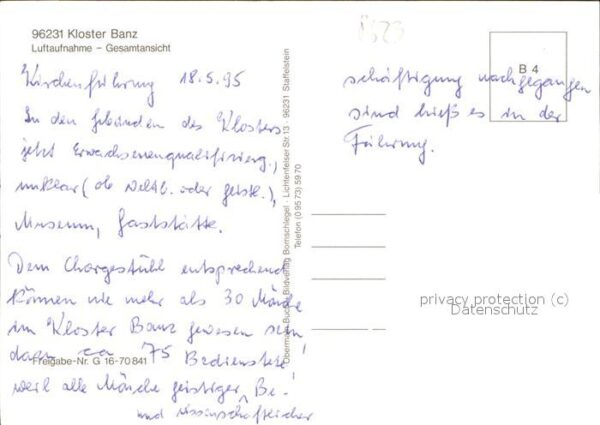 96231 Kloster Banz
Luftaufnahme – Gesamtansicht
Kirchenführung 18.5.95
In den Gebäuden des Klosters
jetzt Erwachsenenqualifizierg.,
unklar (ob weltl. oder geistl.),
Museum, Gaststätte.
Dem Chorgestühl entsprechend
können nie mehr als 30 Mönche
im Kloster Banz gewesen sein
dazu ca 75 Bedienstete!
Freigabe-Nr. G 16-70 841
weil alle Mönche geistiger, Be-
und wissenschaftlicher
Obermain Buch- u. Bildverlag Bornschlegel · Lichtenfelser Str. 13 · 96231 Staffelstein
Telefon (0 95 73) 59 70
B 4
schäftigung nachgegangen
sind hieß es in der
Führung.
privacy protection (c)
Datenschutz